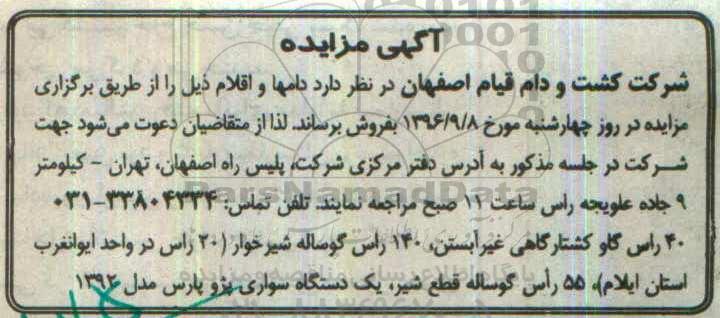 آگهی مزایده
شرکت کشت و دام قیام اصفهان در نظر دارد دامها و اقلام ذیل را از طریق برگزاری
مزایده در روز چهارشنبه مورخ ۱۳۹۶/۹/۸ بفروش برساند. لذا از متقاضیان دعوت می‌شود جهت
شـرکت در جلسه مذکور به آدرس دفتر مرکزی شرکت، پلیس راه اصفهان، تهران - کیلومتر
۹ جاده علویجه راس ساعت ۱۱ صبح مراجعه نمایند. تلفن تماس: ۳۳۸۰۴۳۳۴-۰۳۱
۴۰ راس گاو کشتارگاهی غیرآبستن، ۱۴۰ راس گوساله شیرخوار (۲۰ راس در واحد ایوانغرب
استان ایلام)، ۵۵ رأس گوساله قطع شیر، یک دستگاه سواری پژو پارس مدل ۱۳۹۲
ParsNamadData
پایگاه اطلاع رسانی مناقصه و مزایده